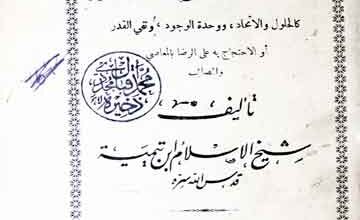 كالحلول والاتحاد، ووحدة الوجود، ونفي القدر
أو الاحتجاج به على الرضا بالمعاصي
تأليف
شيخ الإسلام ابن تيمية
قدس الله سره